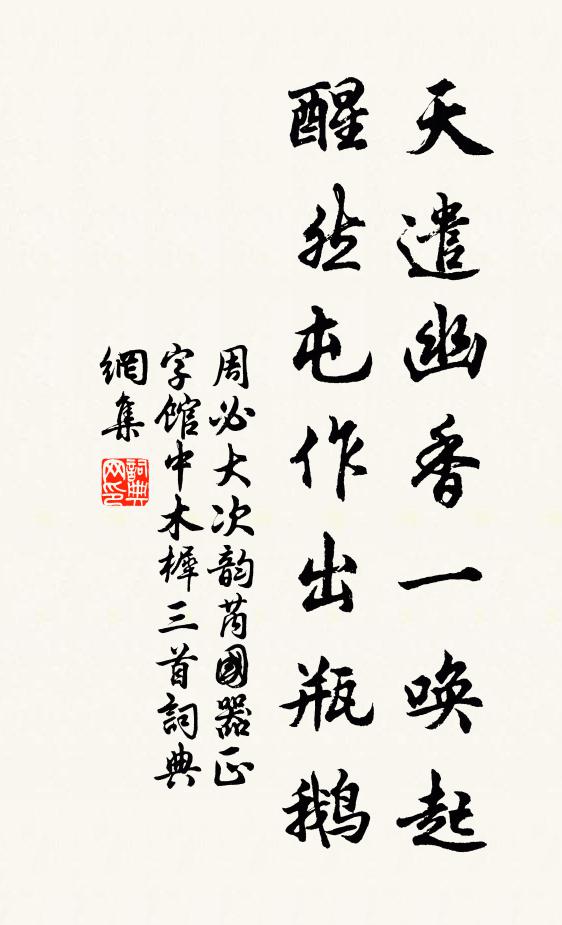 天遣幽香一唤起
醒然屯作出瓶鹅
周必大次韵芮國器正
字馆中木樨三首詞典
網集
詞典网印